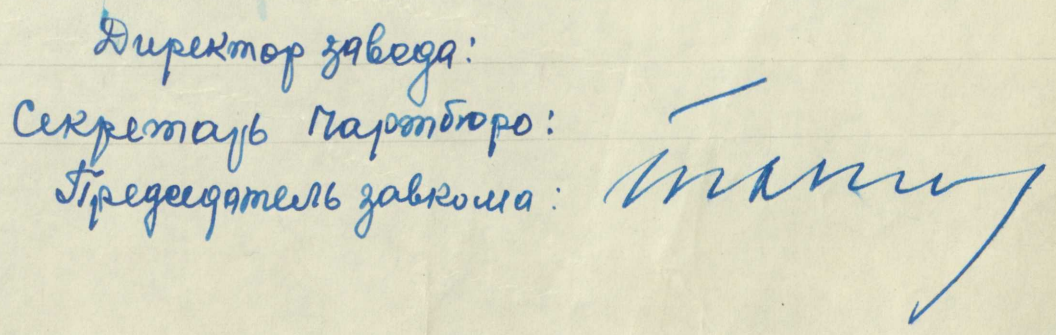 Директор завода:
Секретарь партбюро:
Председатель завкома: